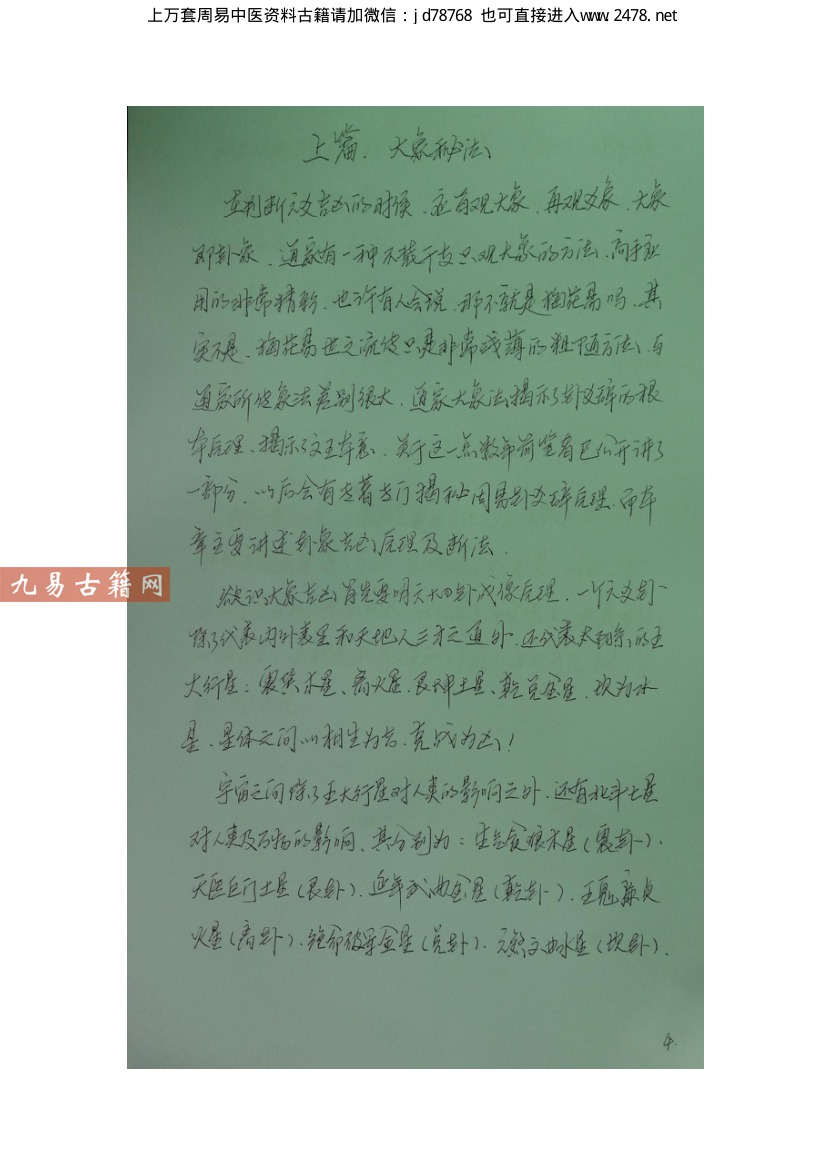 上万套周易中医资料古籍请加微信：jd78768 也可直接进入www.2478.net
上篇、大象秘法
在判断六爻吉凶的时候，应首观大象，再观爻象，大象
即卦象，道家有一种不装干支只观大象的方法，高手应
用的非常精彩，也许有人会说，那不就是梅花易吗，其
实不是，梅花易世之流传只是非常浅薄的粗陋方法，与
道家所传象法差别很大，道家大象法揭示了卦爻辞的根
本原理，揭示了文王本意，关于这一点数年前笔者已公开讲了
一部分，以后会有专著专门揭秘周易卦爻辞原理，而本
章主要讲述卦象吉凶原理及断法．
九易古籍网
欲识大象吉凶首先要明六十四卦成像原理，一个六爻卦
除了代表内外表里和天地人三才之道外，还代表太阳系的五
大行星：震巽木星、离火星、艮坤土星、乾兑金星、坎为水
星，星体之间以相生为吉，克战为凶！
宇宙之间除了五大行星对人类的影响之外，还有北斗七星
对人类及万物的影响，其分别为：生气贪狼木星（震卦）．
天医巨门土星（艮卦）．延年武曲金星（乾卦）．五鬼廉贞
火星（离卦）．绝命破军金星（兑卦）．六煞文曲水星（坎卦）．
4.